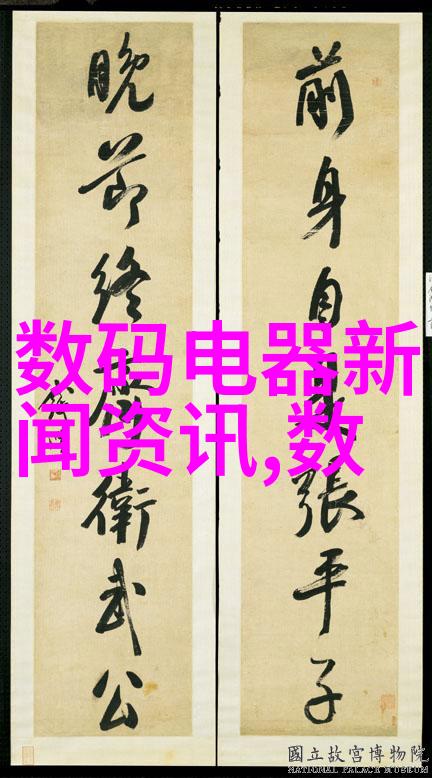 前身自張平子
晚節終衛武公
数码电器新
闻资讯,数
國立故宮博物院
NATIONAL PALACE MUSEUM